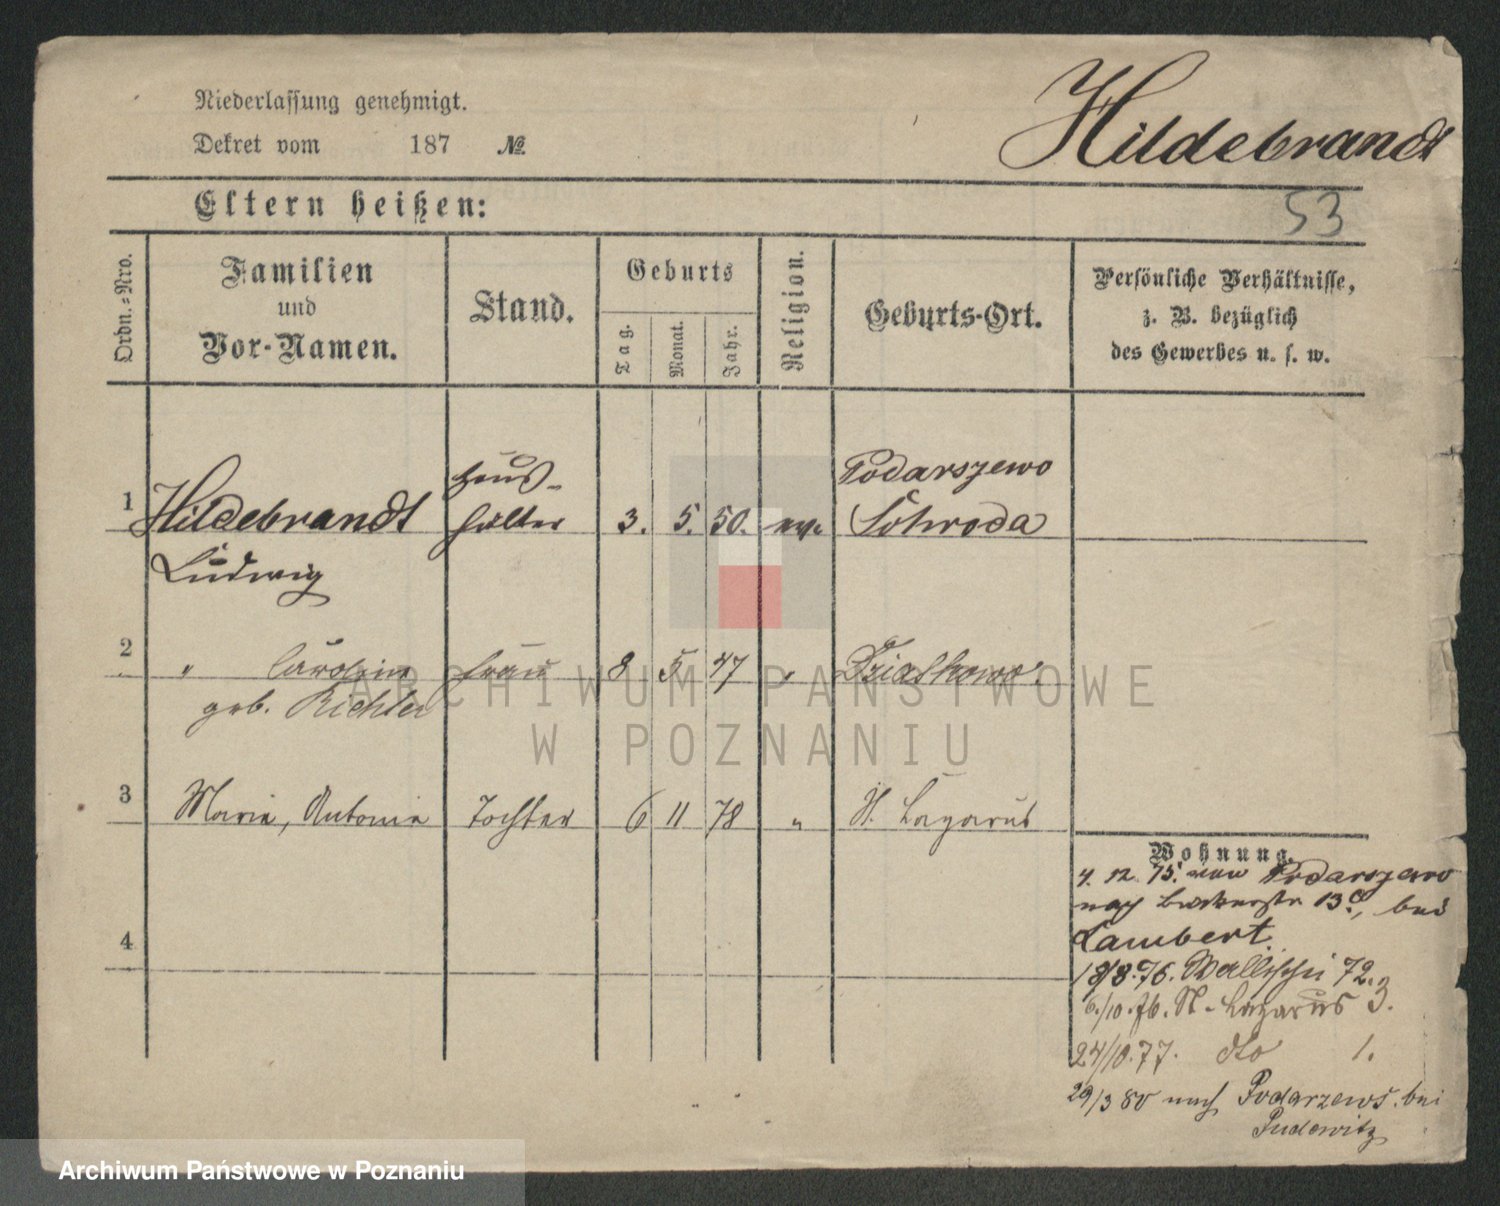 Niederlassung genehmigt.
Dekret vom 187 №
Hildebrandt
Eltern heißen:
53
Ordn.=Nro.
Familien
und
Vor-Namen.
Stand.
Geburts
Tag.
Monat.
Jahr.
Religion.
Geburts-Ort.
Persönliche Verhältnisse,
z. B. bezüglich
des Gewerbes u. s. w.
1 Hildebrandt Haus-
hälter 3. 5. 50. ev. Podarszewo
Schroda
Ludwig
2 " Caroline Frau 8 5 47 "
geb. Richter
3 Maria, Antonie Tochter 6 11 78 " St. Lazarus
4
Wohnung.
4. 12. 75. von Podarszewo
nach 13c, bei
Lambert
18/8.76. Wallischei 72.
6/10.76. St. Lazarus 3.
24/10.77. dto 1.
29/3 80 nach Podarzewo bei
Pudewitz
ARCHIWUM PAŃSTWOWE
W POZNANIU
Archiwum Państwowe w Poznaniu